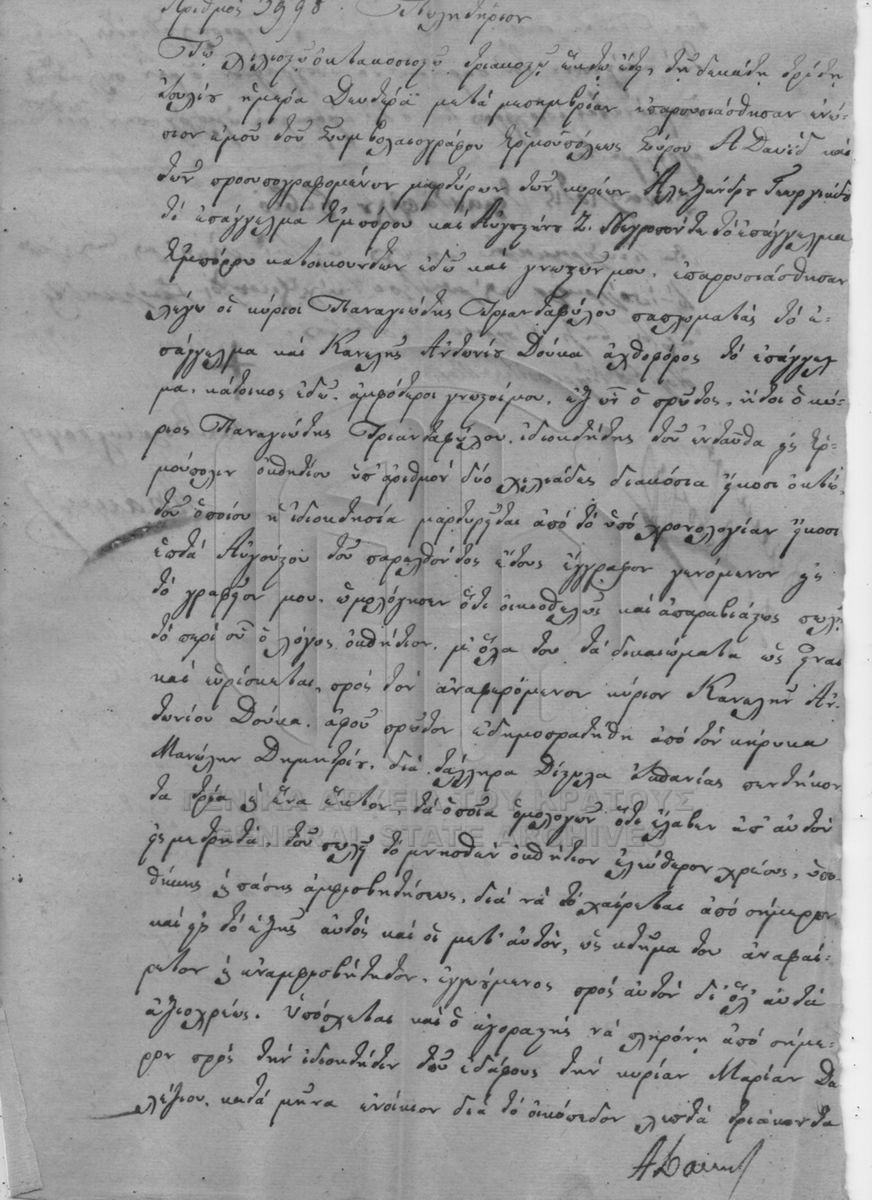 Ἀριθμὸς 3998. Πωλητήριον
Τῷ χιλιοστῷ ὀκτακοσιοστῷ τριακοστῷ ἕκτῳ ἔτει, τῇ δεκάτῃ τρίτῃ
ἰουλίου ἡμέρᾳ Δευτέρᾳ μετὰ μεσημβρίαν ἐπαρουσιάσθησαν ἐνώ-
πιον ἐμοῦ τοῦ Συμβολαιογράφου Ἑρμουπόλεως Σύρου Α Δαυὶδ καὶ
τῶν προσυπογραφομένων μαρτύρων τῶν κυρίων Ἀλεξάνδρου Γεωργιάδου
τὸ ἐπάγγελμα Ἐμπόρου καὶ Αὐγουστῆ Ζ. Νεγροπόντε τὸ ἐπάγγελμα
Ἐμπόρου κατοικούντων ἐδῶ καὶ γνωστῶν μου. ἐπαρουσιάσθησαν
λέγω οἱ κύριοι Παναγιώτης Τριανταφύλλου παπλωματᾶς τὸ ἐ-
πάγγελμα καὶ Κανελῆς Ἀντωνίου Δούκα ἀχθοφόρος τὸ ἐπάγγελ
μα. κάτοικος ἐδῶ. ἀμφότεροι γνωστοί μου. ἐξ ὧν ὁ πρῶτος, ἤτοι ὁ κύ-
ριος Παναγιώτης Τριανταφύλλου. ἰδιοκτήτης τοῦ ἐνταῦθα εἰς Ἑρ-
μούπολιν ὁσπητίου ὑπ' ἀριθμὸν δύο χιλιάδες διακόσια εἴκοσι ὀκτὼ.
τοῦ ὁποίου ἡ ἰδιοκτησία μαρτυρεῖται ἀπὸ τὸ ὑπὸ χρονολογίαν εἴκοσι
ἑπτὰ Αὐγούστου τοῦ παρελθόντος ἔτους ἔγγραφον γενόμενον εἰς
τὸ γραφεῖον μου. ὡμολόγησεν ὅτι οἰκειοθελῶς καὶ ἀπαραβιάστως πωλεῖ
τὸ περὶ οὗ ὁ λόγος ὁσπήτιον. μ' ὅλα του τὰ δικαιώματα ὡς εἶναι
καὶ εὑρίσκεται, πρὸς τὸν ἀναφερόμενον κύριον Κανελῆν Ἀν-
τωνίου Δούκα. ἀφοῦ πρῶτον ἐδημοπρατήθη ἀπὸ τὸν κήρυκα
Μανώλην Δημητρίου. διὰ τάλληρα Δίστηλα Ἱσπανίας πενῆντα
τρία καὶ ἕνα ἕκτον, τὰ ὁποῖα ὁμολογῶν ὅτι ἔλαβεν ἀπ' αὐτὸν
εἰς μετρητὰ. τοῦ πωλεῖ τὸ μνησθὲν ὁσπήτιον ἐλεύθερον χρέους, ὑπο-
θήκης καὶ πάσης ἀμφισβητήσεως. διὰ νὰ τὸ χαίρεται ἀπὸ σήμερον
καὶ εἰς τὸ ἑξῆς αὐτὸς καὶ οἱ μετ' αὐτὸν, ὡς κτῆμα του ἀναφαί-
ρετον καὶ ἀναμφισβήτητον. ἐγγυώμενος πρὸς αὐτὸν δι' ὅλ' αὐτὰ
ἀξιοχρέως. Ὑπόσχεται καὶ ὁ ἀγοραστὴς νὰ πληρόνῃ ἀπὸ σήμε-
ρον πρὸς τὴν ἰδιοκτήτην τοῦ ἐδάφους τὴν κυρίαν Μαρίαν Δα
λέζιου. κατὰ μῆνα ἐνοίκιον διὰ τὸ οἰκόπεδον λεπτὰ τριάκοντα
ΑΔαυιδ
ΓΕΝΙΚΑ ΑΡΧΕΙΑ ΤΟΥ ΚΡΑΤΟΥΣ
GENERAL STATE ARCHIVES